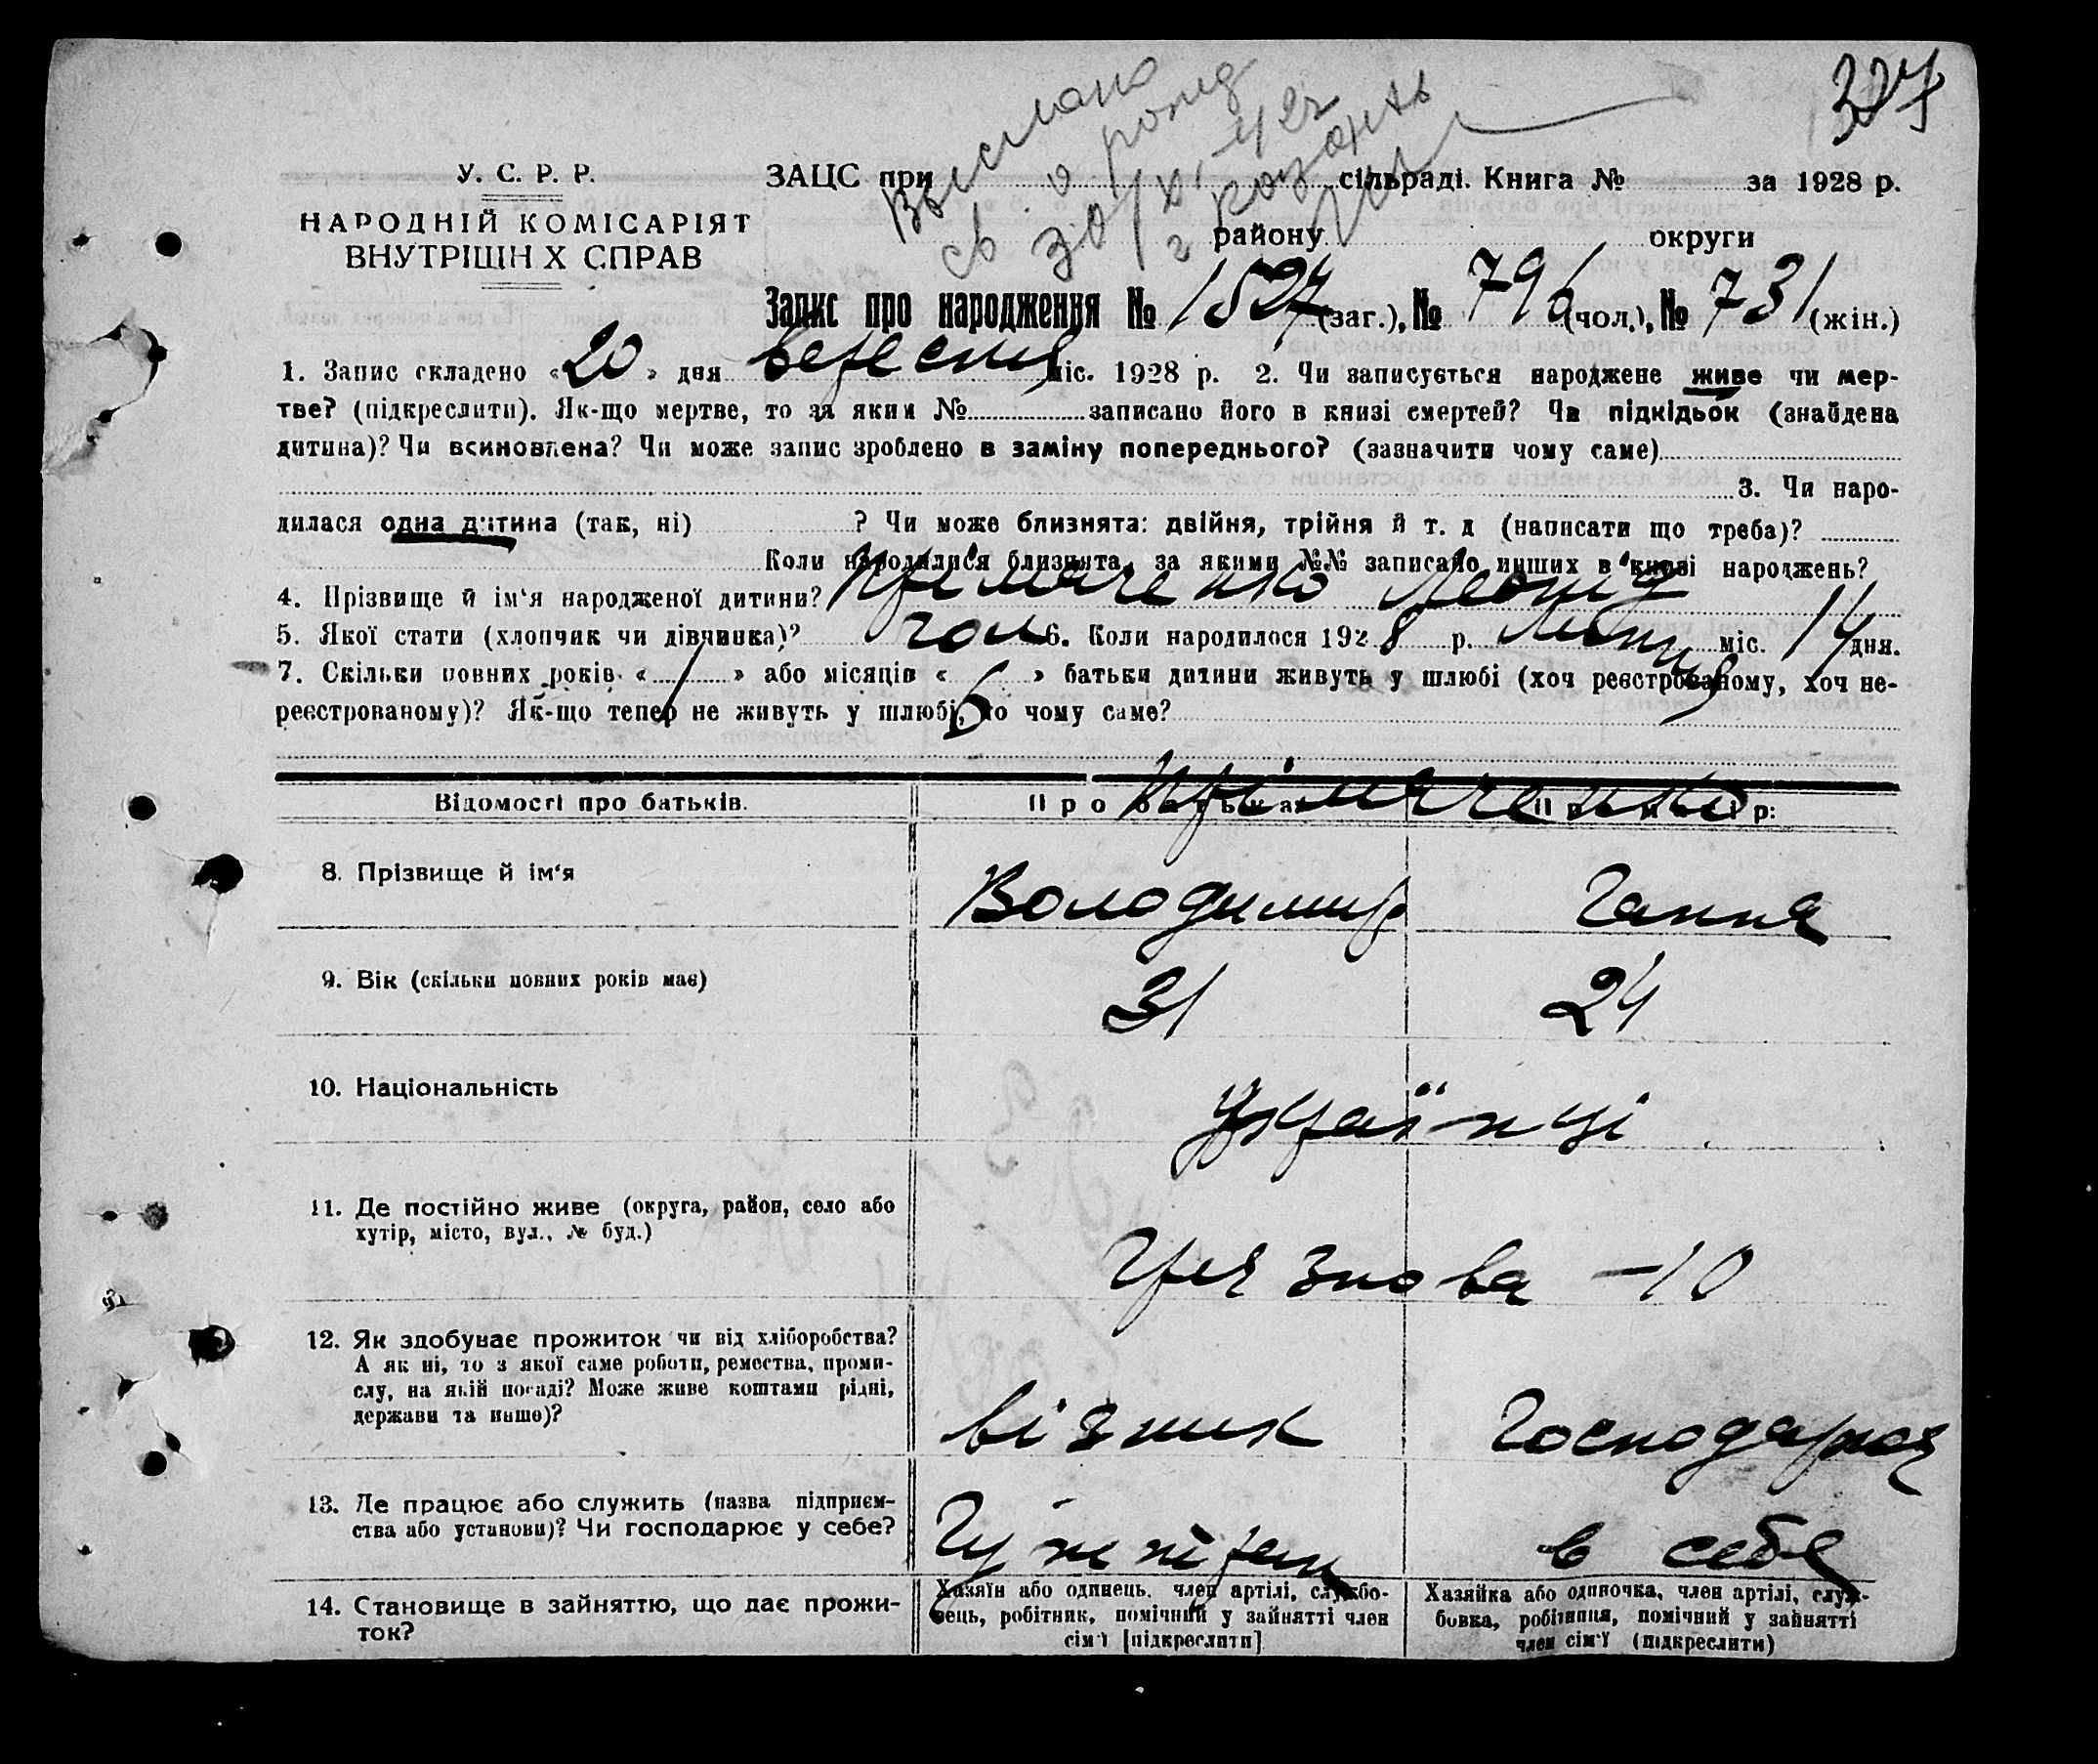 327
Выслано
св. о рожд
30/X, 42г
г Казань
У. С. Р. Р.
НАРОДНІЙ КОМІСАРІЯТ
ВНУТРІШН Х СПРАВ
ЗАЦС при сільраді. Книга № за 1928 р.
району округи
Запис про народження № 1527 (заг.), № 796 (чол.), № 731 (жін.)
1. Запис складено «20» дня вересня міс. 1928 р. 2. Чи записується народжене живе чи мер-
тве? (підкреслити). Як-що мертве, то за яким № записано його в книзі смертей? Чи підкідьок (знайдена
дитина)? Чи всиновлена? Чи може запис зроблено в заміну попереднього? (зазначити чому саме)
3. Чи наро-
дилася одна дитина (так, ні) ? Чи може близнята: двійня, трійня й т. д (написати що треба)?
Коли народилися близнята, за якими №№ записано инших в книзі народжень?
4. Прізвище й ім'я народженої дитини? Прімаченко Леонід
5. Якої стати (хлопчик чи дівчинка)? чол 6. Коли народилося 1928 р. Липня міс. 14 дня.
7. Скільки повних років « / » або місяців « 6 » батьки дитини живуть у шлюбі (хоч реєстрованому, хоч не-
реєстрованому)? Як-що тепер не живуть у шлюбі, то чому саме?
Відомості про батьків. Про батька: Про матір:
Прімаченко
8. Прізвище й ім'я Володимир Ганна
9. Вік (скільки повних років має) 31 24
10. Національність Українці
11. Де постійно живе (округа, район, село або
хутір, місто, вул., № буд.)
Грязнова – 10
12. Як здобуває прожиток чи від хліборобства?
А як ні, то з якої саме роботи, ремества, проми-
слу, на якій посаді? Може живе коштами рідні,
держави та инше)?
візник Господарює
13. Де працює або служить (назва підприєм-
ства або установи)? Чи господарює у себе?
в себе
14. Становище в зайняттю, що дає прожи-
ток?
Хазяїн або одинець, член артілі, службо-
вець, робітник, помічний у зайнятті член
сім'ї [підкреслити]
Хазяйка або одиночка, член артілі, служ-
бовка, робітниця, помічний у зайнятті
член сім'ї (підкреслити)